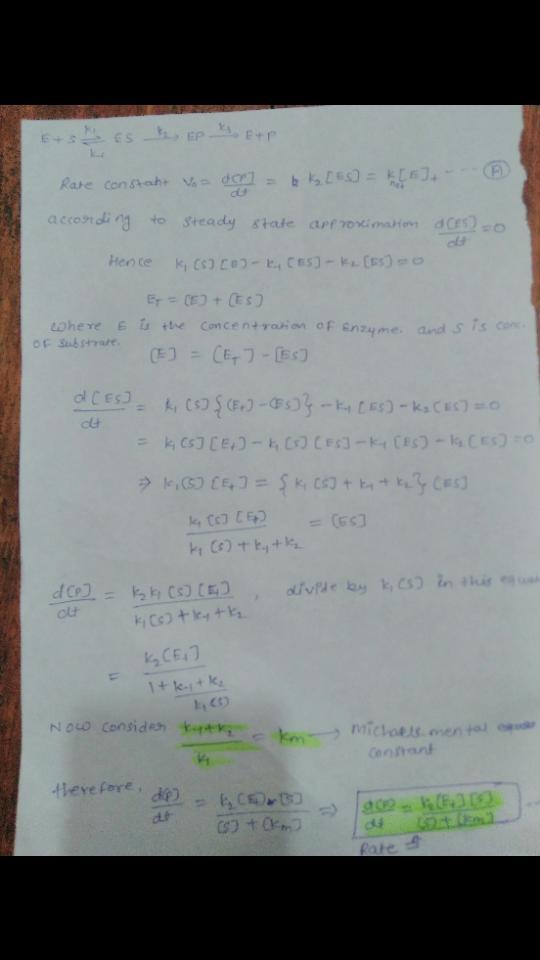 E + S ⇌ ES →k2 EP →k3 E+P
Rate constant V₀ = d[P]/dt = k₂[ES] = [E]ₜ ---- 
according to steady state approximation d[ES]/dt = 0
Hence k₁[S][E] - k₋₁[ES] - k₂[ES] = 0
E_T = [E] + [ES]
where E is the concentration of Enzyme. and S is conc.
of substrate.
[E] = [E_T] - [ES]
d[ES]/dt = k₁[S]{[Eₜ] - [ES]} - k₋₁[ES] - k₂[ES] = 0
= k₁[S][Eₜ] - k₁[S][ES] - k₋₁[ES] - k₂[ES] = 0
⇒ k₁[S][Eₜ] = {k₁[S] + k₋₁ + k₂}[ES]
k₁[S][Eₜ] / k₁[S] + k₋₁ + k₂ = [ES]
d[P]/dt = k₂k₁[S][Eₜ] / k₁[S] + k₋₁ + k₂ , divide by k₁[S] in this
= k₂[Eₜ] / 1 + k₋₁ + k₂ / k₁[S]
Now consider k₋₁ + k₂ / k₁ = km → Michaels mental
constant
therefore, d[P]/dt = k₂[Eₜ] [S] / [S] + [km] ⇒ d[P]/dt = k₂[Eₜ][S] / [S] + [km]
Rate